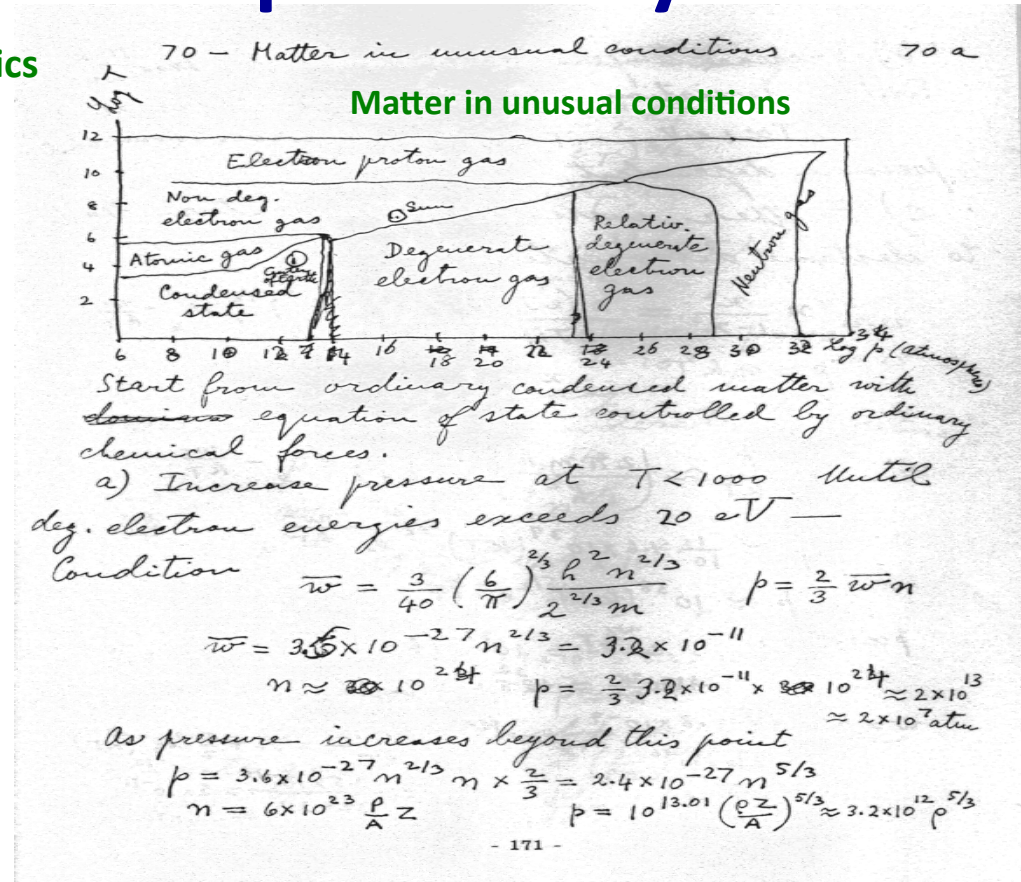 ics
70 – Matter in unusual conditions 70 a
Matter in unusual conditions
Log T
12
10
8
6
4
2
Electron proton gas
Non deg.
electron gas
Sun
Atomic gas
Condensed
state
Degenerate
electron gas
Relativ.
degenerate
electron
gas
Neutron gas
6 8 10 12 14 16 18 20 22 24 26 28 30 32 34 Log p (atmospheres)
Start from ordinary condensed matter with
equation of state controlled by ordinary
chemical forces.
a) Increase pressure at T<1000 Until
deg. electron energies exceeds 20 eV —
Condition w̅ = 3/40 (6/π)^2/3 h^2 n^2/3 / 2^2/3 m p = 2/3 w̅ n
w̅ = 3.6×10^-27 n^2/3 = 3.2×10^-11
n ≈ 10^24 p = 2/3 3.2×10^-11 × 10^24 ≈ 2×10^13
≈ 2×10^7 atm
As pressure increases beyond this point
p = 3.6×10^-27 n^2/3 n × 2/3 = 2.4×10^-27 n^5/3
n = 6×10^23 ρ/A Z p = 10^13.01 (ρZ/A)^5/3 ≈ 3.2×10^12 ρ^5/3
- 171 -